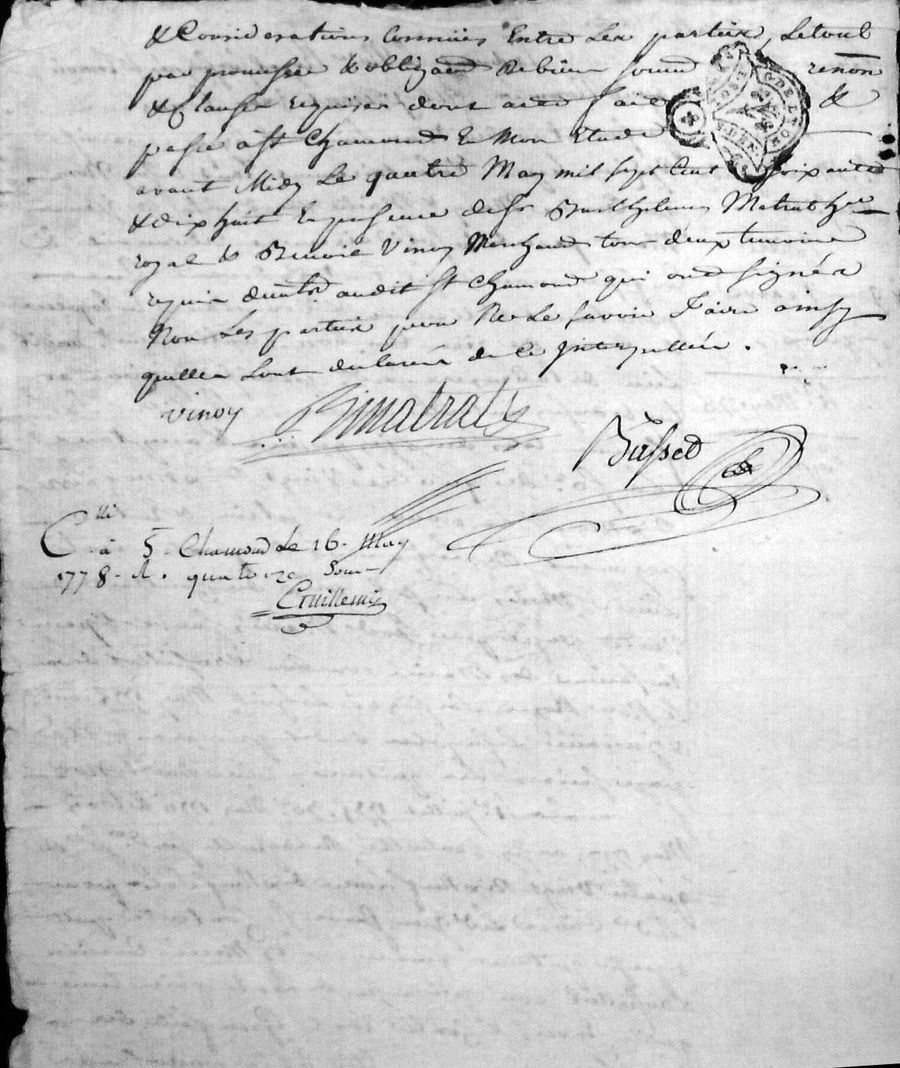 & Considerations Connües Entre Les parties, Le tout
par promesse & obligaõn de biens soumi renõn
& Clause requises dont acte fait &
passé a st Chamond En Mon Etude
avant Midy Le quatre May mil sept Cent soixante
& dix huit En presence de sr Barthelemy Matrat hr
royal & Benoit Vinoy Marchand tous deux temoins
requis audit st Chamond qui ont signés
Non Les parties pour Ne Le savoir faire ainsy
quelles L'ont declaré de Ce Interpellées.
Vinoy BMatrat
Basset
Clli à S. Chamond Le 16. May
1778. R. quatorze Sous